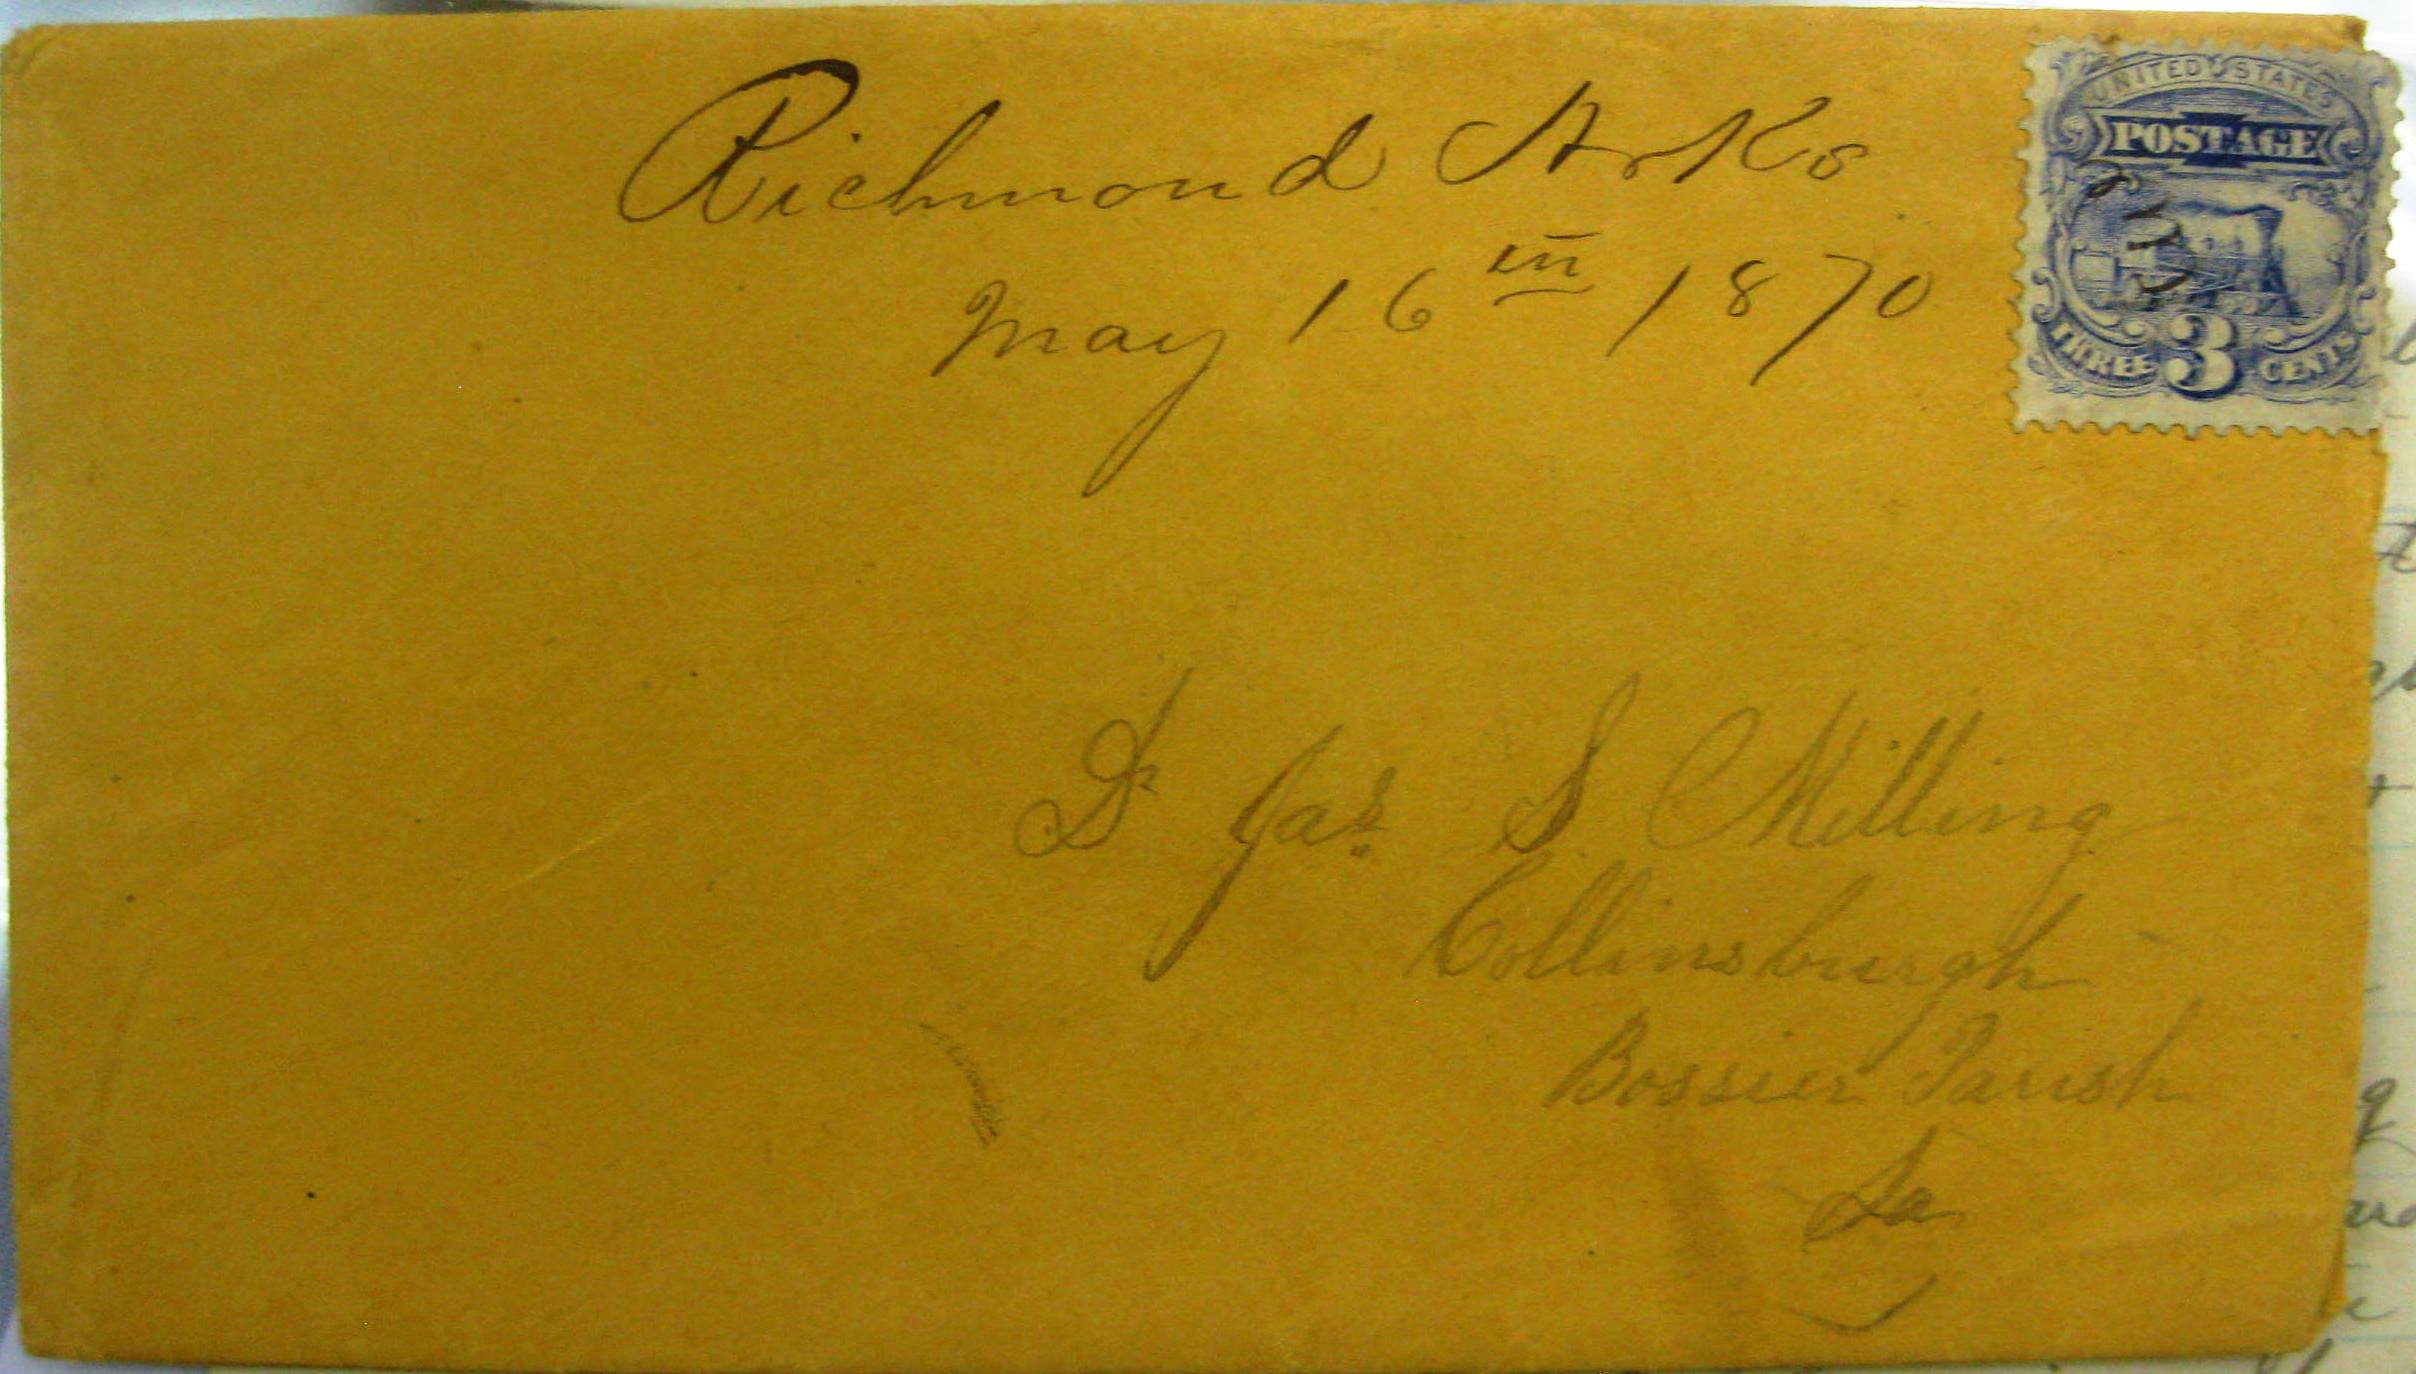 Richmond Arks
May 16th 1870
UNITED STATES
POSTAGE
THREE 3 CENTS
Dr Jas S Milling
Collinsburgh
Bossier Parish
La